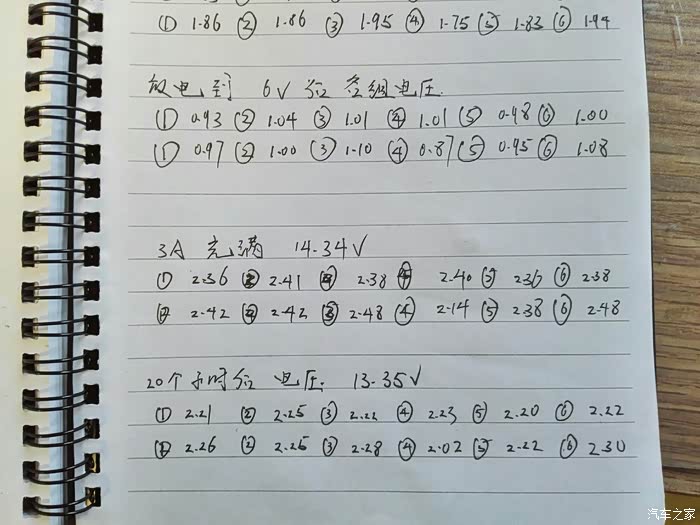 ① 1.86 ② 1.86 ③ 1.95 ④ 1.75 ⑤ 1.83 ⑥ 1.94
放电到 6V 后 各组电压
① 0.93 ② 1.04 ③ 1.01 ④ 1.01 ⑤ 0.98 ⑥ 1.00
① 0.97 ② 1.00 ③ 1.10 ④ 0.87 ⑤ 0.95 ⑥ 1.08
3A 充满 14.34V
① 2.36 ② 2.41 ③ 2.38 ④ 2.40 ⑤ 2.36 ⑥ 2.38
2.42 ② 2.42 ③ 2.48 ④ 2.14 ⑤ 2.38 ⑥ 2.48
20个小时后 电压: 13.35V
① 2.21 ② 2.25 ③ 2.22 ④ 2.23 ⑤ 2.20 ⑥ 2.22
① 2.26 ② 2.26 ③ 2.28 ④ 2.02 ⑤ 2.22 ⑥ 2.30
汽车之家